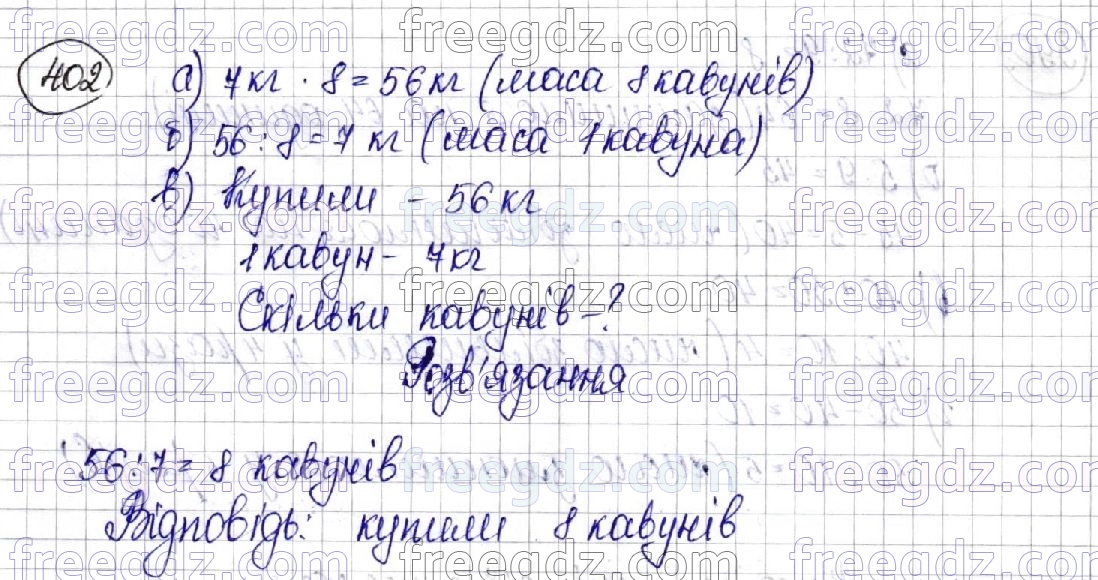 402 а) 7кг · 8 = 56кг (маса 8 кавунів)
б) 56 : 8 = 7 кг (маса 1 кавуна)
в) Купили - 56 кг
1 кавун - 7кг
Скільки кавунів - ?
Розв'язання
56 : 7 = 8 кавунів
Відповідь: купили 8 кавунів
freegdz.com